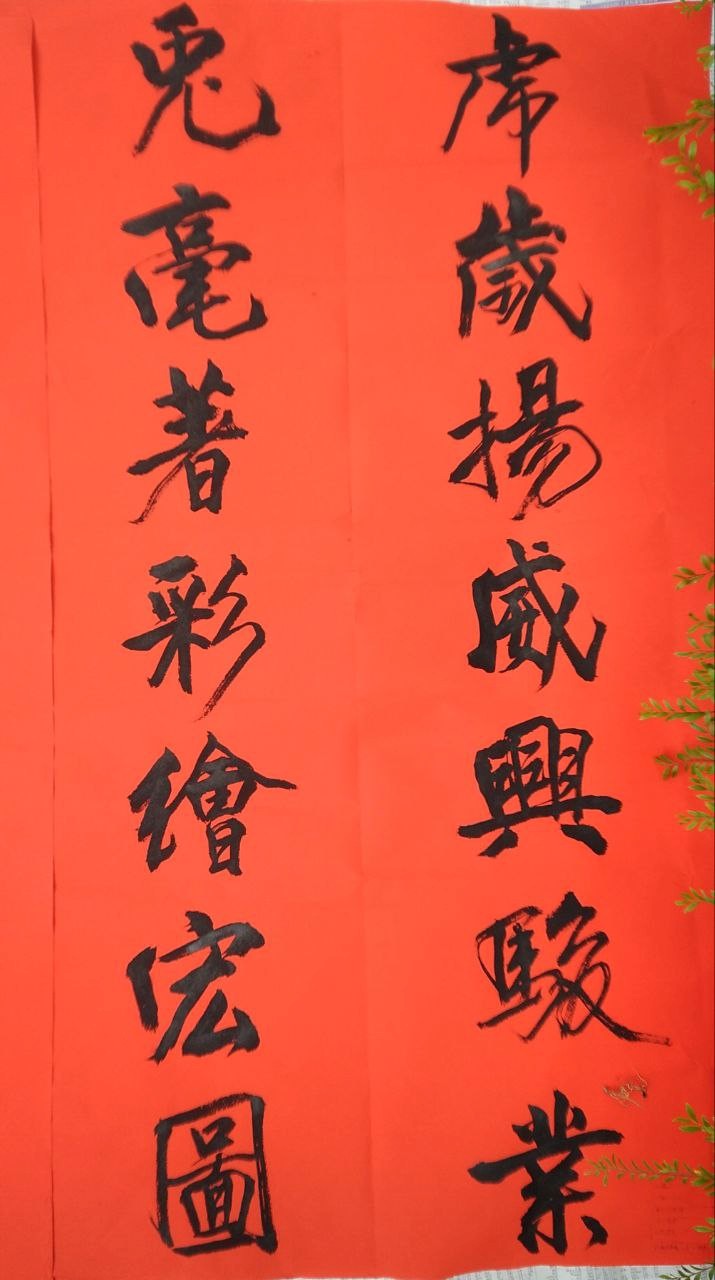 虎歲揚威興駿業
兎毫著彩繪宏圖